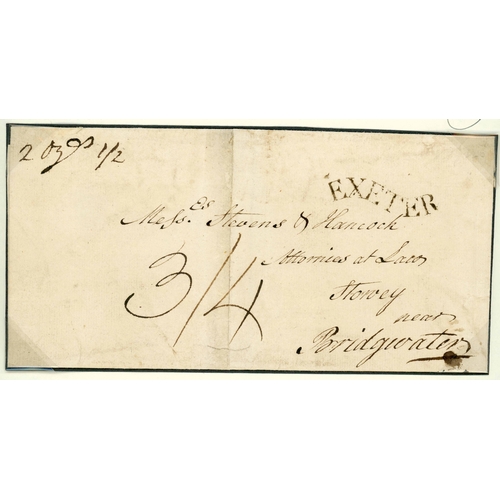 2 Ozs 1/2
EXETER
Messrs Stevens & Hancock
Attornies at Law
3/4
Stowey
near
Bridgwater